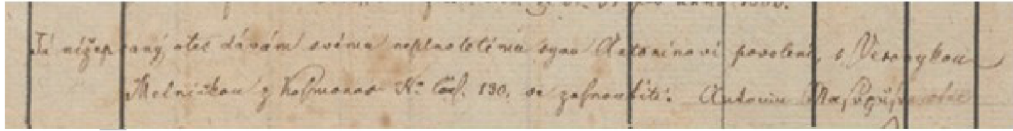 Já nížepsaný otec dávám svému neplnoletému synu Antonínovi povolení, s Veronykou
Melničkou z Kosmonos No Cod. 130. se zasnoubiti. Antonín otec